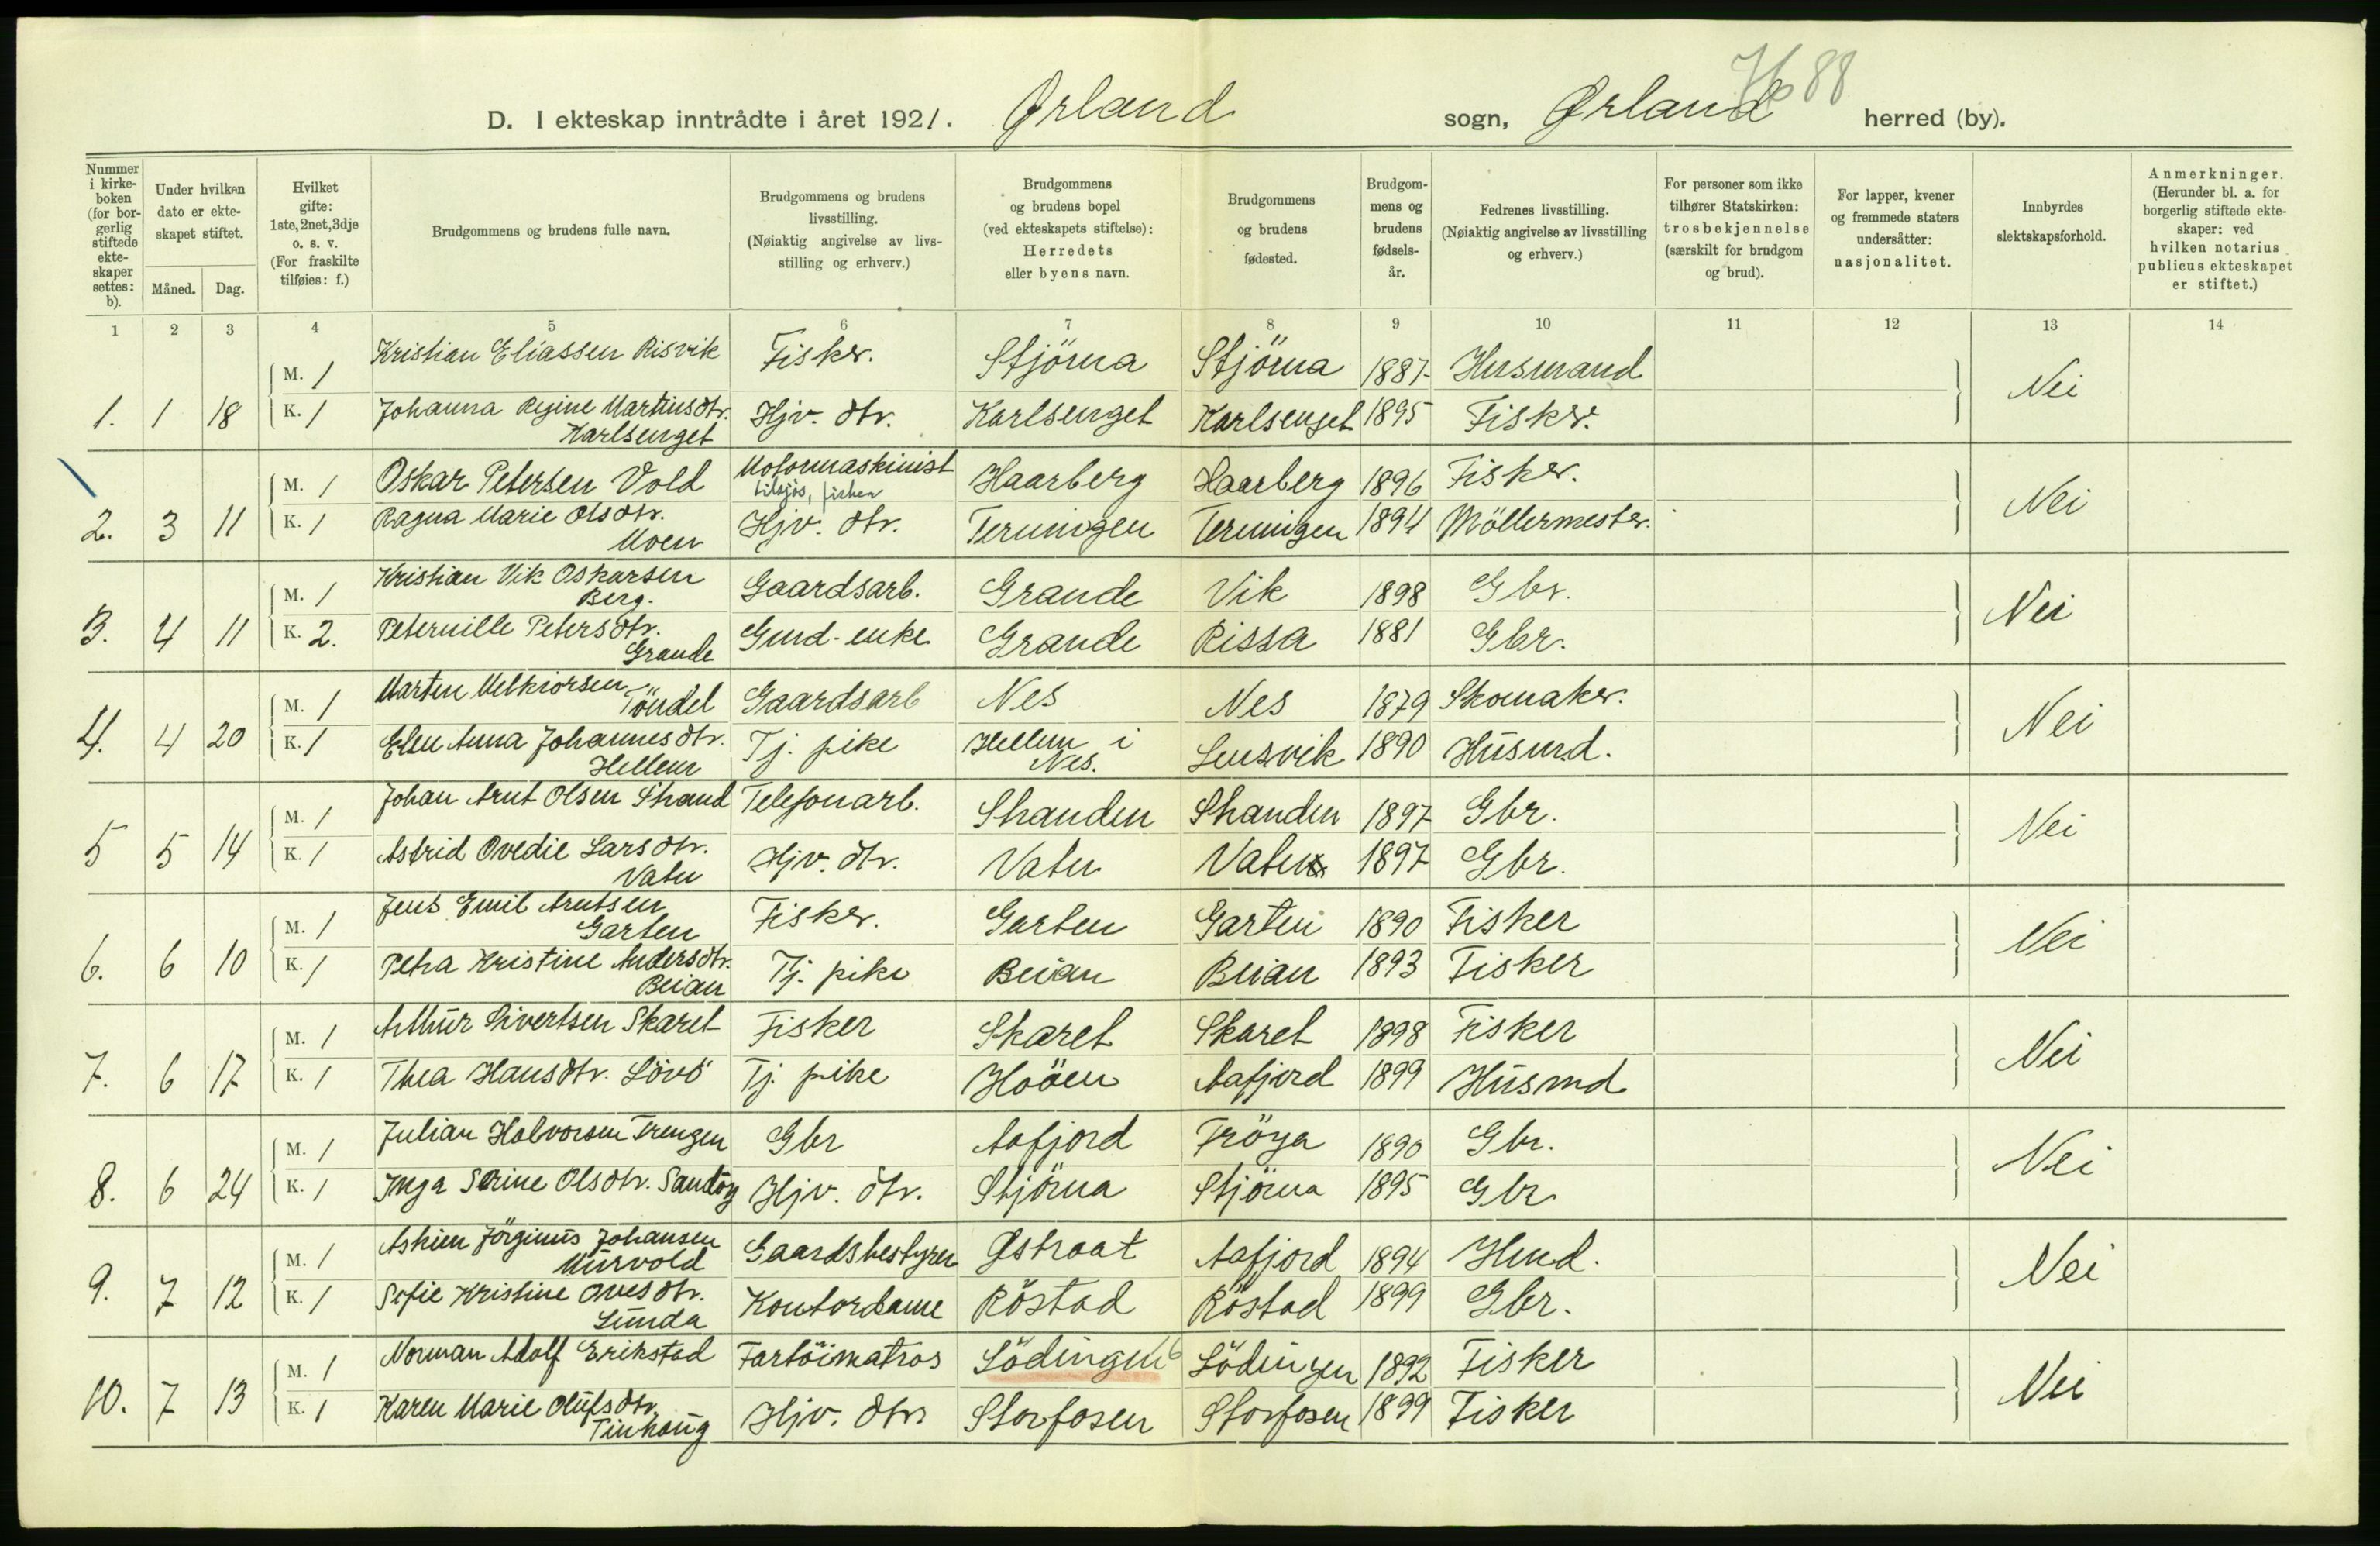 H 88
D. I ekteskap inntrådte i året 1921. Ørland sogn, Ørland herred (by).
Nummer i kirkeboken (for borgerlig stiftede ekteskaper settes: b).
Under hvilken dato er ekteskapet stiftet.
Måned. Dag.
Hvilket gifte: 1ste, 2net, 3dje o. s. v. (For fraskilte tilføies: f.)
Brudgommens og brudens fulle navn.
Brudgommens og brudens livsstilling. (Nøiaktig angivelse av livsstilling og erhverv.)
Brudgommens og brudens bopel (ved ekteskapets stiftelse): Herredets eller byens navn.
Brudgommens og brudens fødested.
Brudgommens og brudens fødselsår.
Fedrenes livsstilling. (Nøiaktig angivelse av livsstilling og erhverv.)
For personer som ikke tilhører Statskirken: trosbekjennelse (særskilt for brudgom og brud).
For lapper, kvener og fremmede staters undersåtter: nasjonalitet.
Innbyrdes slektskapsforhold.
Anmerkninger. (Herunder bl. a. for borgerlig stiftede ekteskaper: ved hvilken notarius publicus ekteskapet er stiftet.)
1 2 3 4 5 6 7 8 9 10 11 12 13 14
M. 1 Kristian Eliassen Risvik Fisker. Stjörna Stjörna 1887 Husmand Nei
1. 1 18 K. 1 Johanna Regine Martinsdtr. Karlsenget Hjv. dtr. Karlsenget Karlsenget 1895 Fisker.
M. 1 Oskar Petersen Vold Motormaskinist tilsjös, fisker Haarberg Haarberg 1896 Fisker. Nei
2. 3 11 K. 1 Ragna Marie Olsdtr. Moen Hjv. dtr. Terningen Terningen 1894 Möllermester.
M. 1 Kristian Vik Oskarsen Berg. Gaardsarb. Grande Vik 1898 Gbr. Nei
3. 4 11 K. 2. Peternille Petersdtr. Grande Gmd-enke Grande Rissa 1881 Gbr.
M. 1 Marten Melkiorsen Töndel Gaardsarb Nes Nes 1879 Skomaker. Nei
4. 4 20 K. 1 Elen Anna Johannesdtr. Hellem Tj. pike Hellem i Nes. Lensvik 1890 Husmd.
M. 1 Johan Arnt Olsen Strand Telefonarb. Stranden Stranden 1897 Gbr. Nei
5 5 14 K. 1 Astrid Ovedie Larsdtr. Vatn Hjv. dtr. Vatn Vatn 1897 Gbr.
M. 1 Jens Emil Arntsen Garten Fisker. Garten Garten 1890 Fisker Nei
6. 6 10 K. 1 Petra Kristine Andersdtr. Beian Tj. pike Beian Beian 1893 Fisker
M. 1 Arthur Sivertsen Skaret Fisker Skaret Skaret 1898 Fisker Nei
7. 6 17 K. 1 Thea Hansdtr. Lövö Tj. pike Hoöen Aafjord 1899 Husmd
M. 1 Julian Halvorsen Trengen Gbr Aafjord Fröya 1890 Gbr. Nei
8. 6 24 K. 1 Inga Serine Olsdtr. Sandöy Hjv. dtr. Stjörna Stjörna 1895 Gbr
M. 1 Askim Jörginus Johansen Murvold Gaardsbestyrer Østraat Aafjord 1894 Hmd. Nei
9. 7 12 K. 1 Sofie Kristine Ovesdtr. Lunda Kontordame Röstad Röstad 1899 Gbr.
M. 1 Norman Adolf Erikstad Fartöimatros Lödingen Lödingen 1892 Fisker Nei
10. 7 13 K. 1 Karen Marie Olufsdtr. Tinhaug Hjv. dtr. Storfosen Storfosen 1899 Fisker